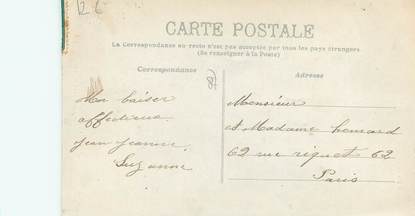 CARTE POSTALE
La Correspondance au recto n'est pas acceptée par tous les pays étrangers
(Se renseigner à la Poste)
Correspondance
Adresse
Mon baiser
affectueux
Jean Jeanne
Suzanne
Monsieur
et Madame
62 rue riquet 62
Paris